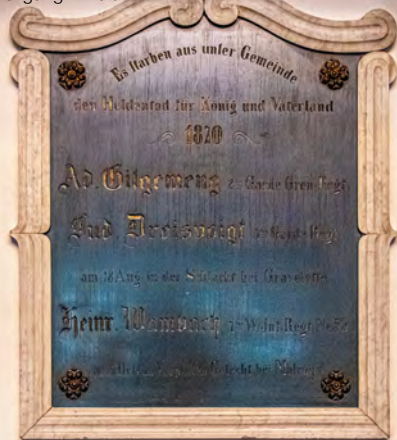 Es starben aus unser Gemeinde
den Heldentod für König und Vaterland
1870
Ad. Gilgemeng 2tes Garde Gren. Regt.
Lud. Dreisvoigt Garde Regt
am 18 Aug. in der Schlacht bei Gravelotte
Heinr. Wambach Inf. Regt. No
Gefecht bei